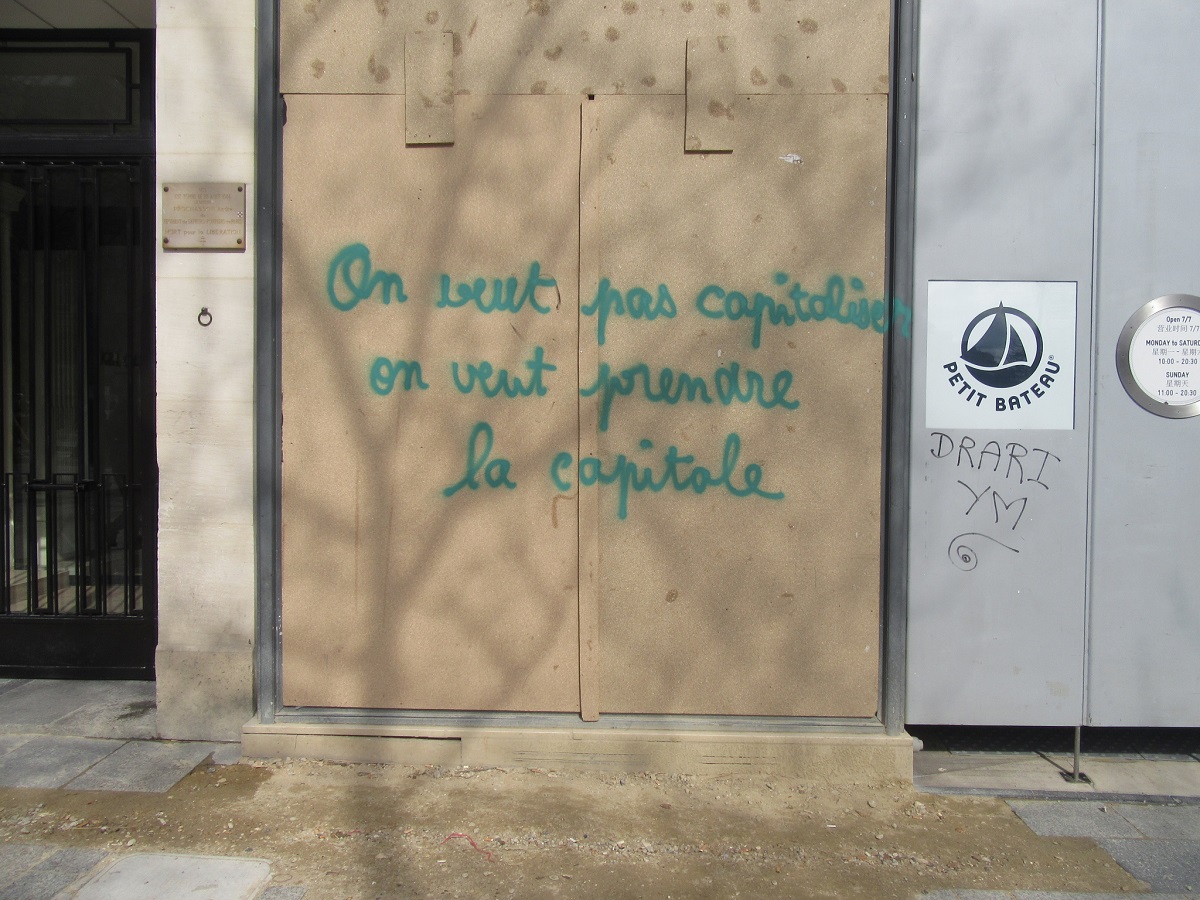 On veut pas capitaliser
on veut prendre
la capitole
PETIT BATEAU®
DRARI
YM
Open 7/7
营业时间 7/7
MONDAY to SATUR
星期一 - 星期
10:00 - 20:30
SUNDAY
星期天
11:00 - 20:30